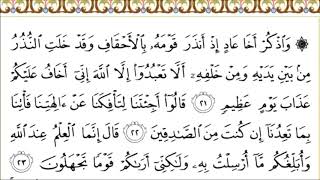 ۞ وَٱذْكُرْ أَخَا عَادٍ إِذْ أَنذَرَ قَوْمَهُۥ بِٱلْأَحْقَافِ وَقَدْ خَلَتِ ٱلنُّذُرُ
مِنۢ بَيْنِ يَدَيْهِ وَمِنْ خَلْفِهِۦٓ أَلَّا تَعْبُدُوٓا۟ إِلَّا ٱللَّهَ إِنِّىٓ أَخَافُ عَلَيْكُمْ
عَذَابَ يَوْمٍ عَظِيمٍ ٢١ قَالُوٓا۟ أَجِئْتَنَا لِتَأْفِكَنَا عَنْ ءَالِهَتِنَا فَأْتِنَا
بِمَا تَعِدُنَآ إِن كُنتَ مِنَ ٱلصَّـٰدِقِينَ ٢٢ قَالَ إِنَّمَا ٱلْعِلْمُ عِندَ ٱللَّهِ
وَأُبَلِّغُكُم مَّآ أُرْسِلْتُ بِهِۦ وَلَـٰكِنِّىٓ أَرَىٰكُمْ قَوْمًا تَجْهَلُونَ ٢٣